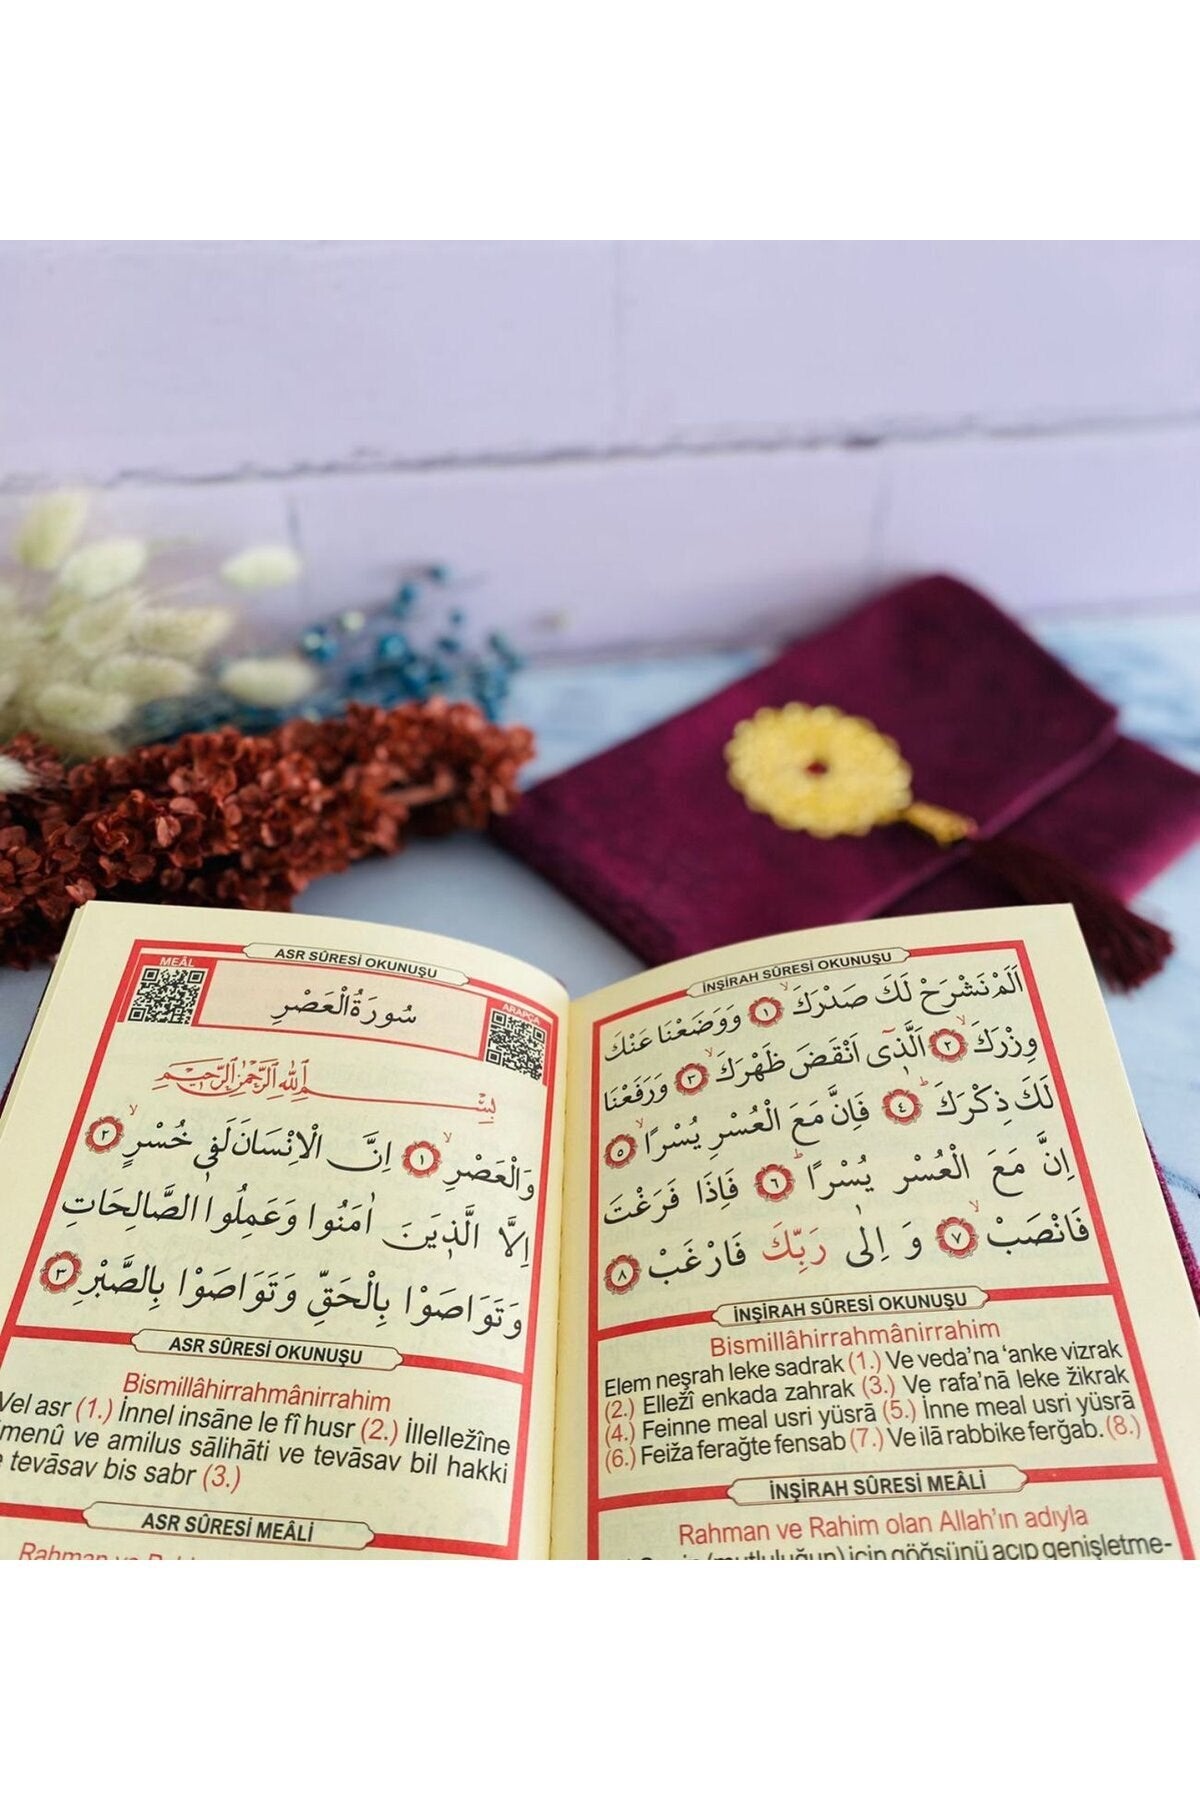 ASR SÛRESİ OKUNUŞU
MEÂL
سُورَةُ الْعَصْرِ
ARAPÇA
بِسْمِ اللّٰهِ الرَّحْمٰنِ الرَّحِيمِ
وَالْعَصْرِۙ ١ اِنَّ الْاِنْسَانَ لَفٖي خُسْرٍۙ ٢
اِلَّا الَّذٖينَ اٰمَنُوا وَعَمِلُوا الصَّالِحَاتِ
وَتَوَاصَوْا بِالْحَقِّ وَتَوَاصَوْا بِالصَّبْرِ ٣
ASR SÛRESİ OKUNUŞU
Bismillâhirrahmânirrahim
Vel asr (1.) İnnel insāne le fî husr (2.) İllelležîne
menû ve amilus sālihāti ve tevāsav bil hakki
tevāsav bis sabr (3.)
ASR SÛRESİ MEÂLİ
Rahman ve
İNŞİRAH SÛRESİ OKUNUŞU
اَلَمْ نَشْرَحْ لَكَ صَدْرَكَۙ ١ وَوَضَعْنَا عَنْكَ
وِزْرَكَۙ ٢ اَلَّذٖٓى اَنْقَضَ ظَهْرَكَۙ ٣ وَرَفَعْنَا
لَكَ ذِكْرَكَؕ ٤ فَاِنَّ مَعَ الْعُسْرِ يُسْرًاۙ ٥
اِنَّ مَعَ الْعُسْرِ يُسْرًاؕ ٦ فَاِذَا فَرَغْتَ
فَانْصَبْۙ ٧ وَ اِلٰى رَبِّكَ فَارْغَبْ ٨
İNŞİRAH SÛRESİ OKUNUŞU
Bismillâhirrahmânirrahim
Elem neşrah leke sadrak (1.) Ve veda'na 'anke vizrak
(2.) Elležî enkada zahrak (3.) Ve rafa'nā leke žikrak
(4.) Feinne meal usri yüsrā (5.) İnne meal usri yüsrā
(6.) Feiža ferağte fensab (7.) Ve ilā rabbike ferğab. (8.)
İNŞİRAH SÛRESİ MEÂLİ
Rahman ve Rahim olan Allah'ın adıyla
(mutluluğun) için göğsünü açıp genişletme-